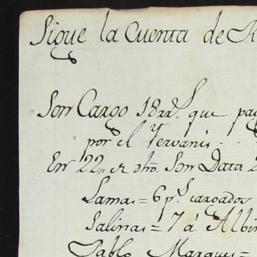 Sigue la Cuenta de
Son Cargo 18 rr.s que
por el Yervanis
En 22 „ de dho. Son Data 2
Lamas = 6 p.s cargados
Salinas = 7 a Albin
Pablo Marques =